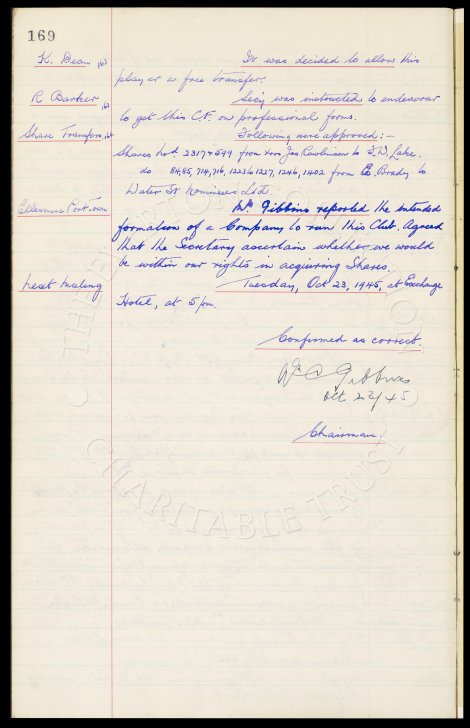 169
K. Dean, 163 It was decided to allow this
player a free transfer.
R Barker, 163 Sec'y was instructed to endeavour
to get this C.F. on professional forms.
Share Transfers, Following were approved:-
Shares Nos. 2317 & 599 from Jas Rawlinson to F. W. Lake.
do 84, 85, 714, 716, 1223 1227, 1246, 1402 from E. Brady to
Water St Nominees Ltd.
Ellesmere Port Town Mr. Gibbins reported the intended
formation of a Company to run this Club. Agreed
that the Secretary ascertain whether we would
be within our rights in acquiring Shares.
Next Meeting Tuesday, Oct 23, 1945, at Exchange
Hotel, at 5 pm.
Confirmed as correct.
Wm C Gibbins
Oct 23/45
Chairman.
THE EVERTON COLLECTION
CHARITABLE TRUST